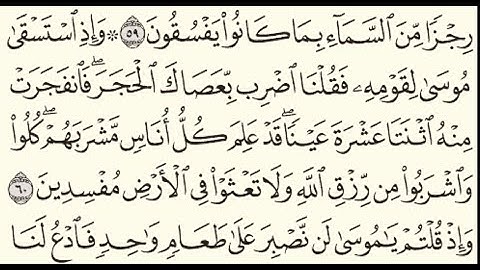 رِجْزًا مِّنَ ٱلسَّمَآءِ بِمَا كَانُوا۟ يَفْسُقُونَ ۝٥٩ ۞ وَإِذِ ٱسْتَسْقَىٰ
مُوسَىٰ لِقَوْمِهِۦ فَقُلْنَا ٱضْرِب بِّعَصَاكَ ٱلْحَجَرَۖ فَٱنفَجَرَتْ
مِنْهُ ٱثْنَتَا عَشْرَةَ عَيْنًاۖ قَدْ عَلِمَ كُلُّ أُنَاسٍ مَّشْرَبَهُمْۖ كُلُوا۟
وَٱشْرَبُوا۟ مِن رِّزْقِ ٱللَّهِ وَلَا تَعْثَوْا۟ فِى ٱلْأَرْضِ مُفْسِدِينَ ۝٦٠
وَإِذْ قُلْتُمْ يَـٰمُوسَىٰ لَن نَّصْبِرَ عَلَىٰ طَعَامٍ وَٰحِدٍ فَٱدْعُ لَنَا